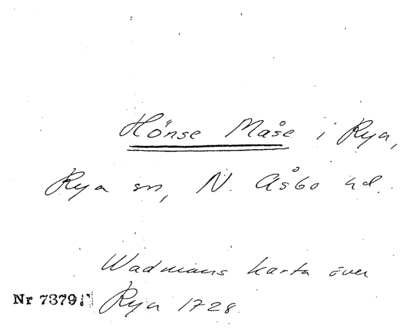 Hönse Måse i Rya,
Rya sn, N. Åsbo hd.
Wadmans karta över
Nr 7379. Rya 1728.